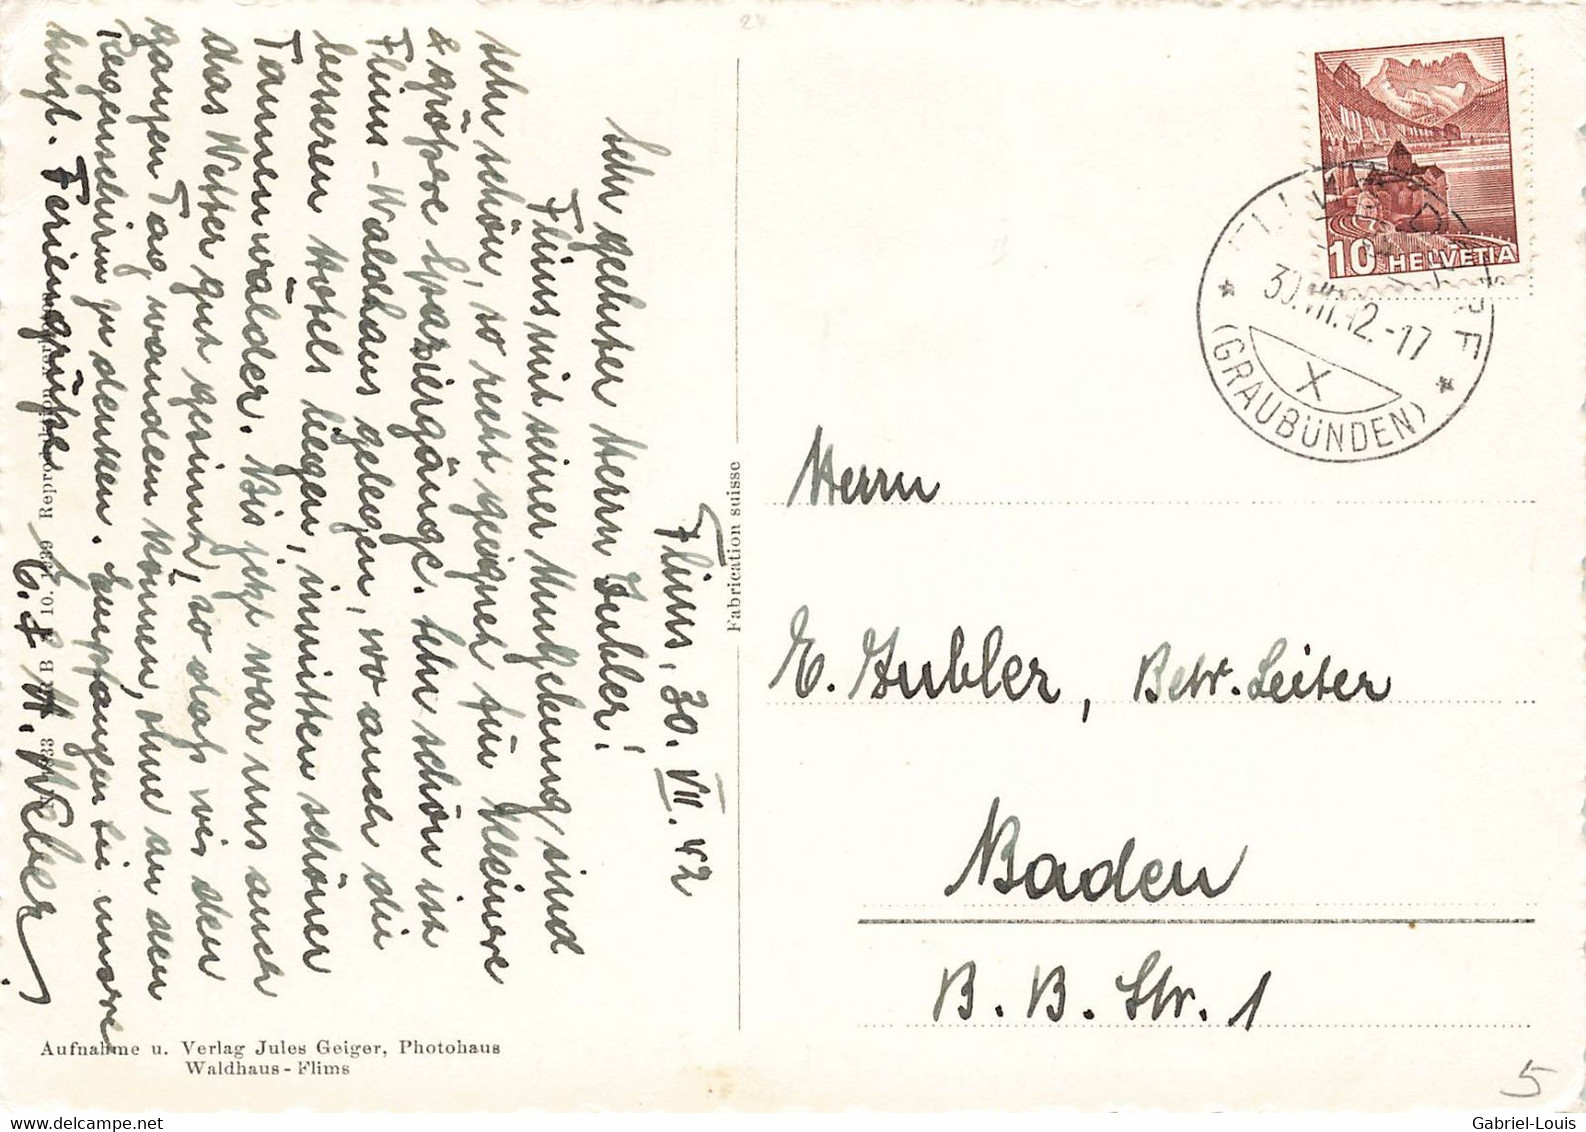 Flims, 30. VII. 42
Sehr geehrter Herrn Hubler!
Flims mit seiner Umgebung sind
sehr schön, so recht geeignet für kleinere
& größere Spaziergänge. Sehr schön ist
Flims-Waldhaus gelegen, wo auch die
besseren Hotels liegen, inmitten schöner
Tannenwälder. Bis jetzt war uns auch
das Wetter gut gesinnt, so daß wir den
ganzen Tag wandern können, ohne an den
Regenschirm zu denken. Empfangen Sie unsere
herzl. Feriengrüße
E. & H. Weber
Reproduktion
10. 1939
Aufnahme u. Verlag Jules Geiger, Photohaus
Waldhaus-Flims
Fabrication suisse
10 HELVETIA
(GRAUBÜNDEN)
X
Herrn
E. Hubler, Betr. Leiter
Baden
B. B. Str. 1
5
Gabriel-Louis